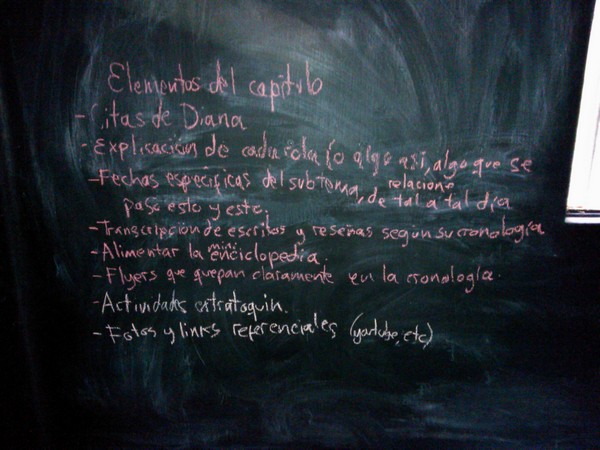 Elementos del capítulo
- Citas de Diana
- Explicación de cada cita (o algo así, algo que se relacione
- Fechas específicas del subtema, de tal a tal día
pasó esto y esto.
- Transcripción de escritos y reseñas según su cronología
- Alimentar la mini enciclopedia.
- Flyers que quepan claramente en la cronología.
- Actividades
- Fotos y links referenciales (youtube, etc)